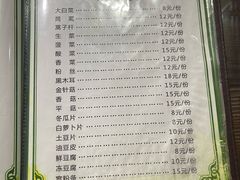 大白菜 8元/份
茼蒿 12元/份
蒿子杆 12元/份
生菜 12元/份
菠菜 12元/份
酸菜 15元/份
香菜 12元/份
粉丝 12元/份
黑木耳 18元/份
金针菇 15元/份
香菇 15元/份
平菇 15元/份
冬瓜片 8元/份
白萝卜片 8元/份
土豆片 10元/份
油豆皮 12元/份
鲜豆腐 8元/份
冻豆腐 10元/份
宽粉条 15元/份